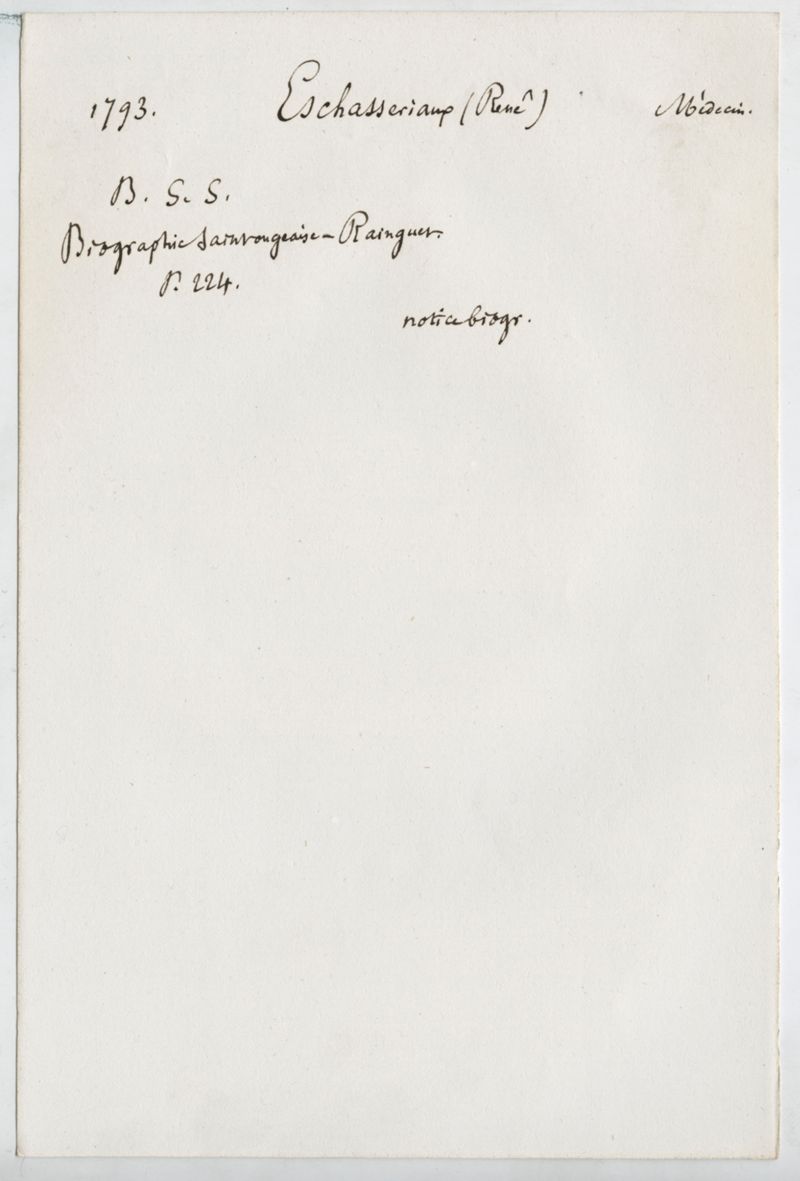 1793. Eschasseriaux (René) Médecin.
B. S. S.
Biographie Saintongeaise – Rainguet.
P. 224.
notice biogr.